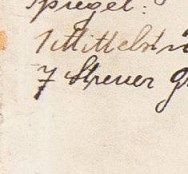 Spiegel:
1 Mittelst
7 Steuer g